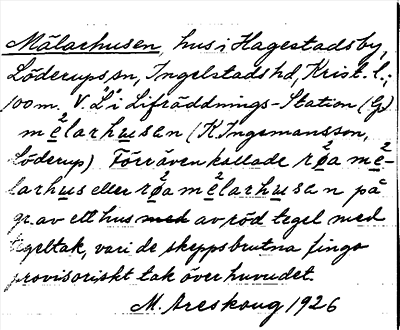 Mälarhusen, hus i Hagestads by,
Löderups sn, Ingelstads hd, Krist. l.;
100 m. V. "L" i Lifräddnings-Station (G)
mẹ̊larhusan (K. Ingemansson,
Löderup). Förr även kallade rø̊a mẹ̊-
larhus eller rø̊a mẹ̊larhusan på
gr. av ett hus med av röd tegel med
tegeltak, vari de skeppsbrutna fingo
provisoriskt tak över huvudet.
M. Areskoug 1926